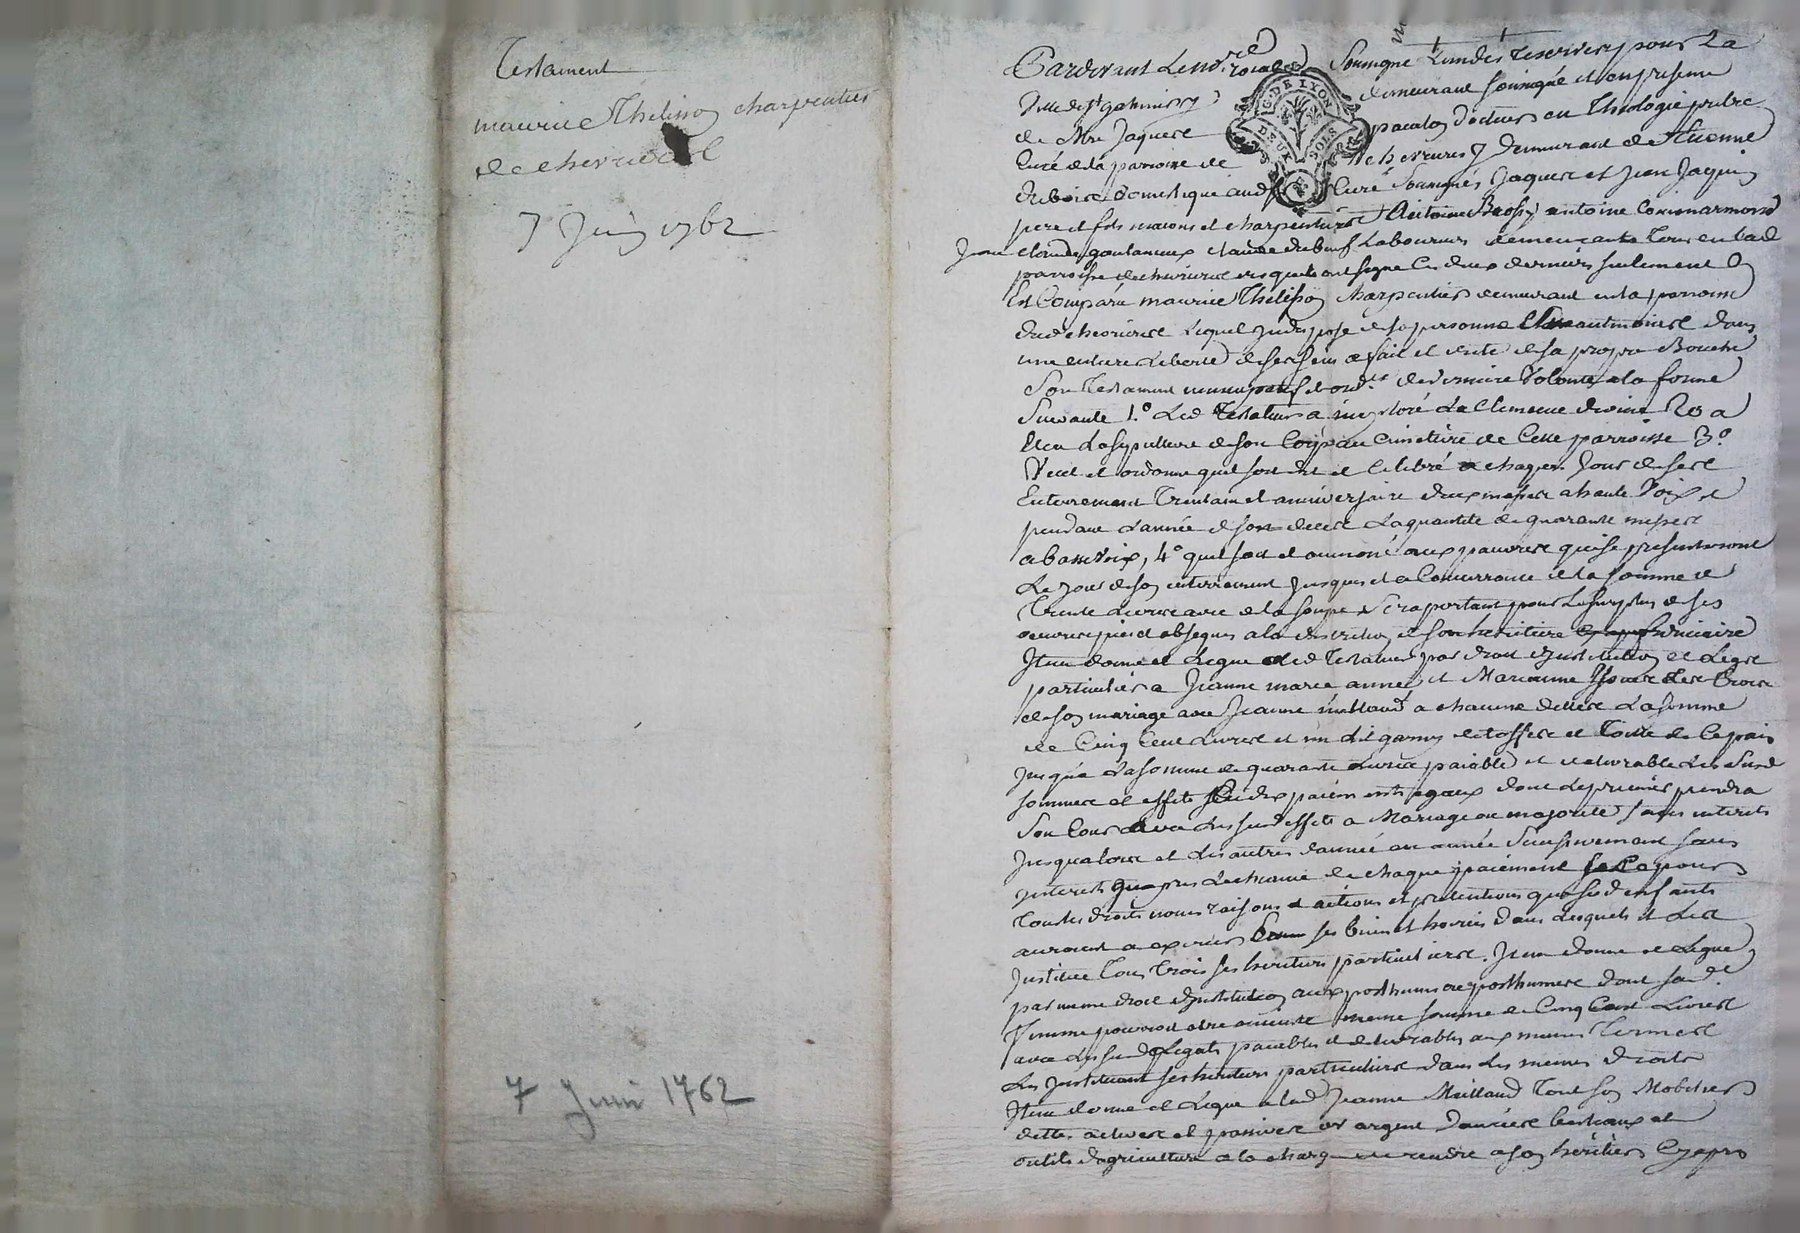 Testament
maurice Thelisson charpentier
de chevrieres
7 Juin 1762
7 Juin 1762
G. DE LYON
DEUX SOLS
Pardevant Le no.re royal Soussigné L'un des reservés pour La
Ville de St galmier demeurant soussigné et en presence
de Mre Jaques docteur en Theologie prêtre
Curé de la parroisse de chevrieres demeurant de Etienne
duboire domestique aud. Curé Soussignés Jaques et Jean Jaquin
pere et fils masons et charpentiers Antoine Brossy antoine
Jean claude goutameux claude dubeuf Laboureurs demeurants tous en lad.
parroisse de chevrieres lesquels ont signé les deux derniers seulement
Est Comparu maurice Thelisson charpentier demeurant en la parroisse
dud. chevrieres Lequel indisposé de sa personne dans
une entiere Liberté de ses sens a fait et dicté de sa propre Bouche
Son Testament nuncupatif et ord.ce de derniere Volonté a la forme
Suivante 1.º Led. Testateur a imploré La Clemence divine 2º a
Elu La sepulture de son Corps au Cimetiere de Cette parroisse 3.º
Veut et ordonne quil soit dit et Celebré a chaque Jour de ses
Enterrement Trentain et anniversaire deux messes a haute Voix et
pendant L'année de son deces La quantité de quarante messes
a basse voix, 4º quil soit aumoné aux pauvres qui se presenteront
Le jour de son enterrement Jusques a la Concurrance de la somme de
Trente Livres avec de la soupe se raportant pour Le surplus de ses
oeuvres pies et obseques a la discretion de son heritiere fiduciaire
Item donne et Legue Led. Testateur par droit d'Institution et Legs
particuliers a Jeanne marie anne et Marianne
de son mariage avec Jeanne maillaud a chacune d'elles La somme
de Cinq Cent Livres et un Lit garny d'etoffes et Toille de Ce pais
Jusqu'a La somme de quarante Livres paiables et delivrables Les susd.
sommes et effets en dix paiements egaux dont Le premier prendra
Son Cours avec Les susd. effets a Mariage ou majorité sans interets
Jusqualors et Les autres d'année en année Successivement sans
interets qu'apres L'echeance de chaque paiement Ce pour
Tous Les droits noms raisons actions et pretentions que sesd. enfants
auroient a exercer ses biens et hoiries dans Lesquels il Les
Justitue Tous Trois ses heritiers particuliers. Item donne et Legue
par meme droit d'institution aux posthumes ou posthumes dont sad.e
femme pourroit etre enceinte meme somme de Cinq Cent Livres
avec Les susd. Legats paiables et delivrables aux memes Termes
Les Justituant ses heritiers particuliers dans Les memes droits
Item donne et Legue a lad. Jeanne Maillaud Tout son Mobilier
dettes actives et passives or argent Danrées bestiaux et
outils d'agriculture a la charge de rendre a son heritier Cyapres